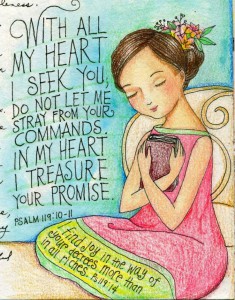 WITH ALL
MY HEART
I SEEK YOU,
DO NOT LET ME
STRAY FROM YOUR
COMMANDS.
IN MY HEART
I TREASURE
YOUR PROMISE.
PSALM 119:10-11
Find joy in the way of
your decrees more than
in all riches. Ps 119:14